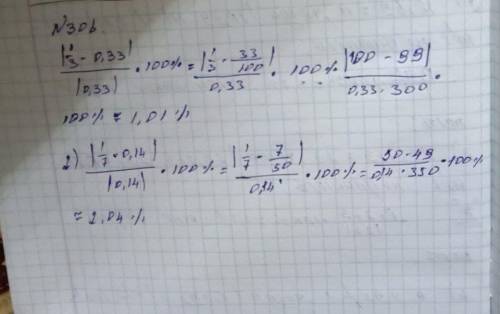 №306
|1/3 - 0,33| / |0,33| · 100% = |1/3 - 33/100| / 0,33 · 100% |100 - 99| / 0,33·300 ·
100% ≈ 1,01%
2) |1/7 - 0,14| / |0,14| · 100% = |1/7 - 7/50| / 0,14 · 100% = 50-49 / 0,14·350 · 100%
≈ 2,04%